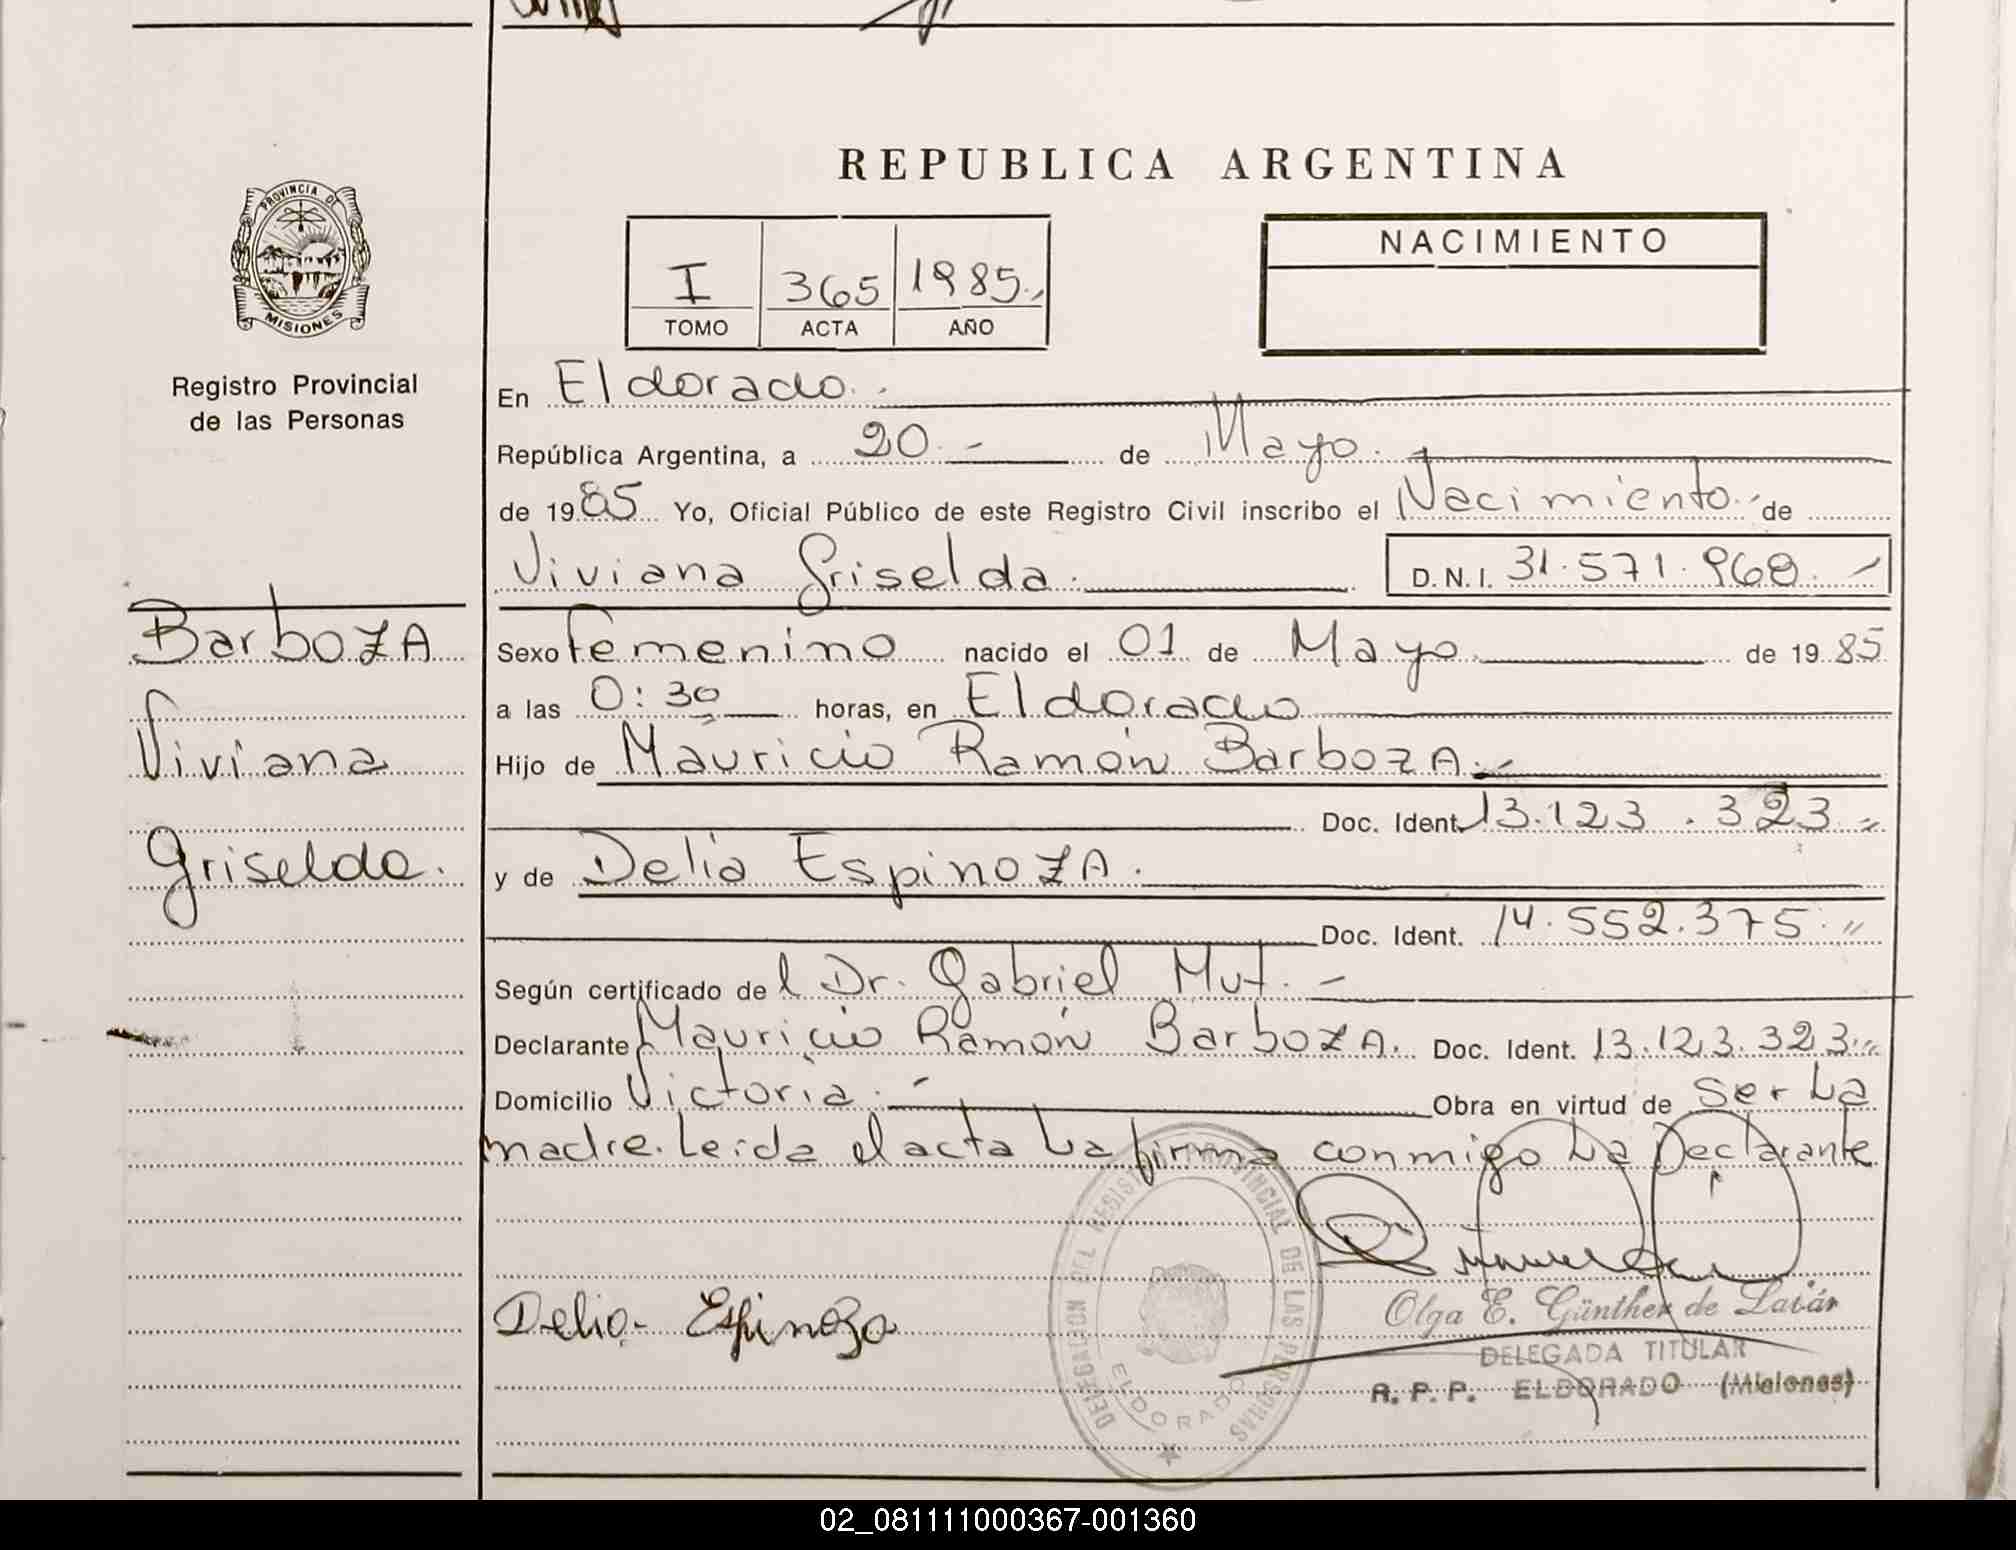 REPUBLICA ARGENTINA
PROVINCIA DE
MISIONES
Registro Provincial
de las Personas
I 365 1985.,
TOMO ACTA AÑO
NACIMIENTO
En Eldorado.-
República Argentina, a 20.- de Mayo.
de 1985 Yo, Oficial Público de este Registro Civil inscribo el Nacimiento.- de
Viviana Griselda. D.N.I. 31.571.968.-
BarbozA
Viviana
Griselda.
Sexo Femenino nacido el 01 de Mayo. de 1985
a las 0:30 horas, en Eldorado
Hijo de Mauricio Ramón BarbozA.-
Doc. Ident. 13.123.323.,,
y de Delia EspinozA.
Doc. Ident. 14.552.375.,,
Según certificado del Dr. Gabriel Mut.-
Declarante Mauricio Ramón BarbozA. Doc. Ident. 13.123.323.,,
Domicilio Victoria.- Obra en virtud de ser La
madre. Leida el acta La firma conmigo La Declarante
DELEGACION DEL REGISTRO PROVINCIAL DE LAS PERSONAS
ELDORADO
Delia- Espinoza
Olga E. Günther de
DELEGADA TITULAR
R. P. P. ELDORADO (Misiones)
02_081111000367-001360